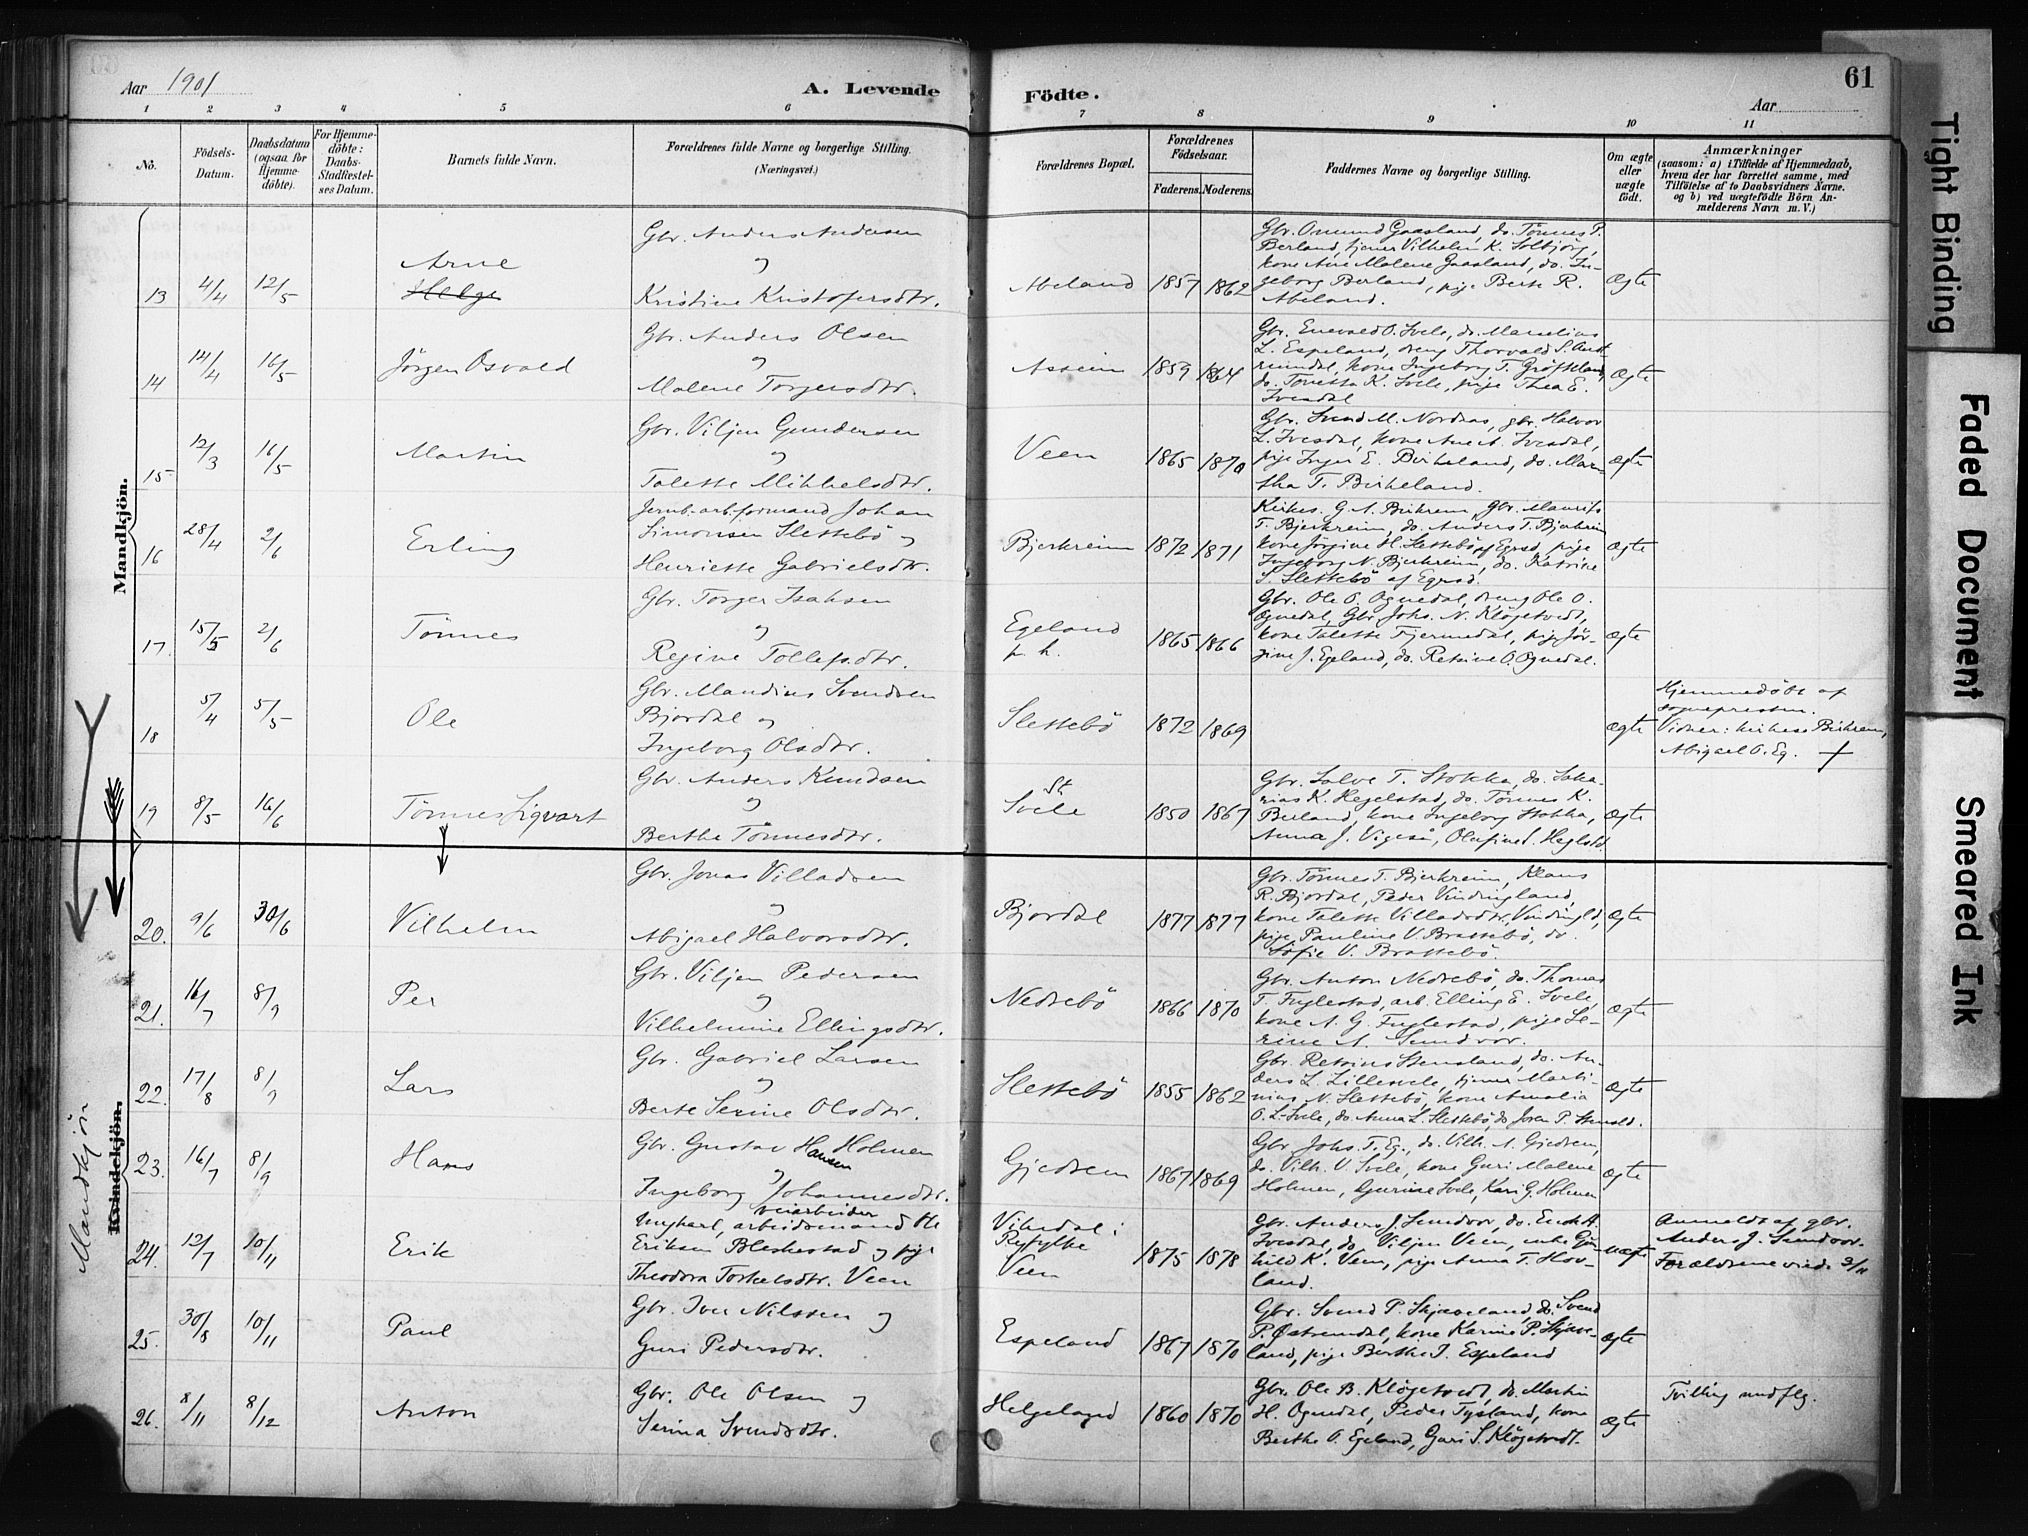 61
Aar 1901
A. Levende
Födte.
Aar
1 2 3 4 5 6 7 8 9 10 11
No.
Födsels-
Datum.
Daabsdatum
(ogsaa for
Hjemme-
döbte).
For Hjemme-
döbte:
Daabs-
Stadfæstel-
ses Datum.
Barnets fulde Navn.
Forældrenes fulde Navne og borgerlige Stilling.
(Næringsvei.)
Forældrenes Bopæl.
Forældrenes
Födselsaar.
Faderens. Moderens.
Faddernes Navne og borgerlige Stilling.
Om ægte
eller
uægte
födt.
Anmærkninger
(saasom: a) i Tilfælde af Hjemmedaab,
hvem der har forrettet samme, med
Tilföielse af to Daabsvidners Navne.
og b) ved uægtefödte Börn An-
melderens Navn m. V.)
Mandkjön.
13
4/4
12/5
Arne
Helge
Gbr. Anders Andersen
og
Kristine Kristofersdtr.
Abeland
1857 1862
Gbr. Omund Gaasland, do. Tönnes P.
Berland, tjener Vilhelm K. Solbjörg,
kone Ane Malene Gaasland, do. In-
geborg Berland, pige Berte R.
Abeland.
Ægte
14
14/4
16/5
Jörgen Osvald
Gbr. Anders Olsen
og
Malene Torgersdtr.
Asseim
1859 1864
Gbr. Enevald O. Svele, do. Marselius
L. Espeland, dreng Thorvald S. Aust-
reimdal, kone Ingeborg T. Gröfteland,
do. Tonetta K. Svele, pige Thea E.
Ivesdal
Ægte
15
12/3
16/5
Martin
Gbr. Viljen Gundersen
og
Talette Mikkelsdtr.
Veen
1865 1870
Gbr. Svend M. Nordraas, gbr. Halvor
L. Ivesdal, kone Ane A. Ivesdal,
pige Inger E. Birkeland, do. Mar-
tha T. Birkeland.
Ægte
16
28/4
2/6
Erling
Jernb. arb. formand Johan
Simonsen Slettebö og
Henriette Gabrielsdtr.
Bjerkreim
1872 1871
Kirkes. G. A. Birkrem, Gbr. Maurits
T. Bjerkreim, do. Anders T. Bjerkreim
kone Jörgine H. Slettebö af Egrsd, pige
Ingeborg N. Bjerkreim, do. Katrine
S. Slettebö af Egrsd.
Ægte
17.
15/5
2/6
Tönnes
Gbr. Torger Isaksen
og
Regine Tollefsdtr.
Egeland
p. h.
1865 1866
Gbr. Ole O. Ognedal, dreng Ole O.
Ognedal, Gbr. Johs. N. Klögetvedt,
kone Talette Fjermedal, pige Jör-
gine J. Egeland, do. Retsine O. Ognedal.
Ægte
18
5/4
5/5
Ole
Gbr. Mandius Svendsen
Bjordal og
Ingeborg Olsdtr.
Slettebö
1872 1869
Ægte
Hjemmedöbt af
sognepresten.
Vidner: kirkes. Birkrem,
Abigael O. Eg. +
19
8/5
16/6
Tönnes Sigvart
Gbr. Anders Knudsen
og
Berthe Tönnesdtr.
St.
Svele
1850 1867
Gbr. Salve T. Stokka, do. Saka-
rias K. Hegelstad, do. Tönnes K.
Berland, kone Ingeborg Stokka,
Anna J. Vigeså, Olufine S. Heglstd.
Ægte
Mandkjön
Kvindekjön.
20.
9/6
30/6
Vilhelm
Gbr. Jonas Villadsen
og
Abigael Halvorsdtr.
Bjordal
1877 1877
Gbr. Tönnes T. Bjerkreim, Klaus
R. Bjordal, Peder Vindingland,
kone Talette Villadsdtr, Vindingld,
pige Pauline V. Brattebö, do.
Sofie V. Brattebö.
Ægte
21.
16/7
8/9
Per
Gbr. Viljen Pedersen
og
Vilhelmine Ellingsdtr.
Nedrebö
1866 1870
Gbr. Anton Nedrebö, do. Thomas
T. Fuglestad, arb. Elling E. Svele,
kone A. G. Fuglestad, pige Se-
rine A. Sundvor.
Ægte
22.
17/8
8/9
Lars
Gbr. Gabriel Larsen
og
Berte Serine Olsdtr.
Slettebö
1855 1862
Gbr. Retsius Stensland, do. An-
ders L. Lillesvele, tjener Marti-
nius N. Slettebö, kone Amalia
O. L-Svele, do. Anna L. Slettebö, do Joren P. Stensld.
Ægte
23.
16/7
8/9
Hans
Gbr. Gustav Hansen Holmen
og
Ingeborg Johannesdtr.
Gjedrem
1867 1869
Gbr. Johs. T. Eg., do. Vilh. A. Gjedrem,
do. Vilh. V. Svele, kone Guri Malene
Holmen, Gurine Svele, Kari G. Holmen
Ægte
24.
12/7
10/11
Erik
veiarbeider
Ungkarl, arbeidsmand Ole
Eriksen Bleskestad og pige
Theodora Torkelsdtr. Veen
Vikedal i
Ryfylke
Veen
1875 1878
Gbr. Anders J. Sundvor, do. Enok A.
Ivesdal, do. Viljen Veen, enke Gun-
hild K. Veen, pige Anna T. Hov-
land.
uægte
Anmeldt af gbr.
Anders J. Sundvor.
Forældrene viede 3/11
25.
30/8
10/11
Paul
Gbr. Iver Nilssen og
Guri Pedersdtr.
Espeland
1867 1870
Gbr. Svend P. Skjæveland, do. Svend
P. Östremdal, kone Karine P. Skjæve-
land, pige Berthe I. Espeland
Ægte
26.
8/11
8/12
Anton
Gbr. Ole Olsen og
Serina Svendsdtr.
Helgeland
1860 1870
Gbr. Ole B. Klögetvedt, do. Martin
H. Ogndal, Peder Tysland, kone
Berthe O. Egeland, Guri S. Klögetvedt.
Ægte
Tvilling med flg.
Tight Binding
Faded Document
Smeared Ink